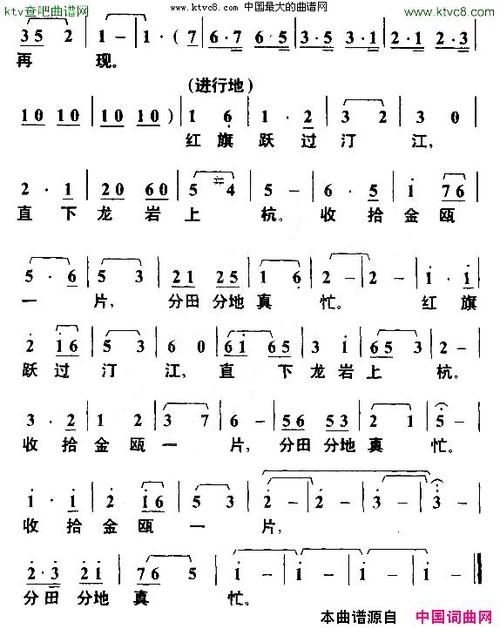 ktv查吧曲谱网 www.ktvc8.com 中国最大的曲谱网 www.ktvc8.com
3 5 5 2 | 1 - | 1 · ( 7 | 6 · 7 6 5 | 3 5 3 1 | 2 · 1 2 3 |
再 现。
(进行地)
1 0 1 0 | 1 0 1 0 ) | 1 6 | 1 · 2 | 3 2 | 3 0 |
红 旗 跃 过 汀 江,
2 · 1 | 2 0 6 0 | 5 #4 | 5 - | 6 · 5 | 1 7 6 |
直 下 龙 岩 上 杭。 收 拾 金 瓯
5 · 6 | 5 3 | 2 1 2 5 | 1 6 | 2 - | 2 - | 1 · 1 |
一 片, 分田 分地 真 忙。 红 旗
2 1 6 | 5 3 | 6 0 | 6 1 6 5 | 3 1 | 6 5 3 | 2 - |
跃 过 汀 江, 直 下 龙 岩 上 杭。
3 · 2 | 1 2 | 3 7 | 6 - | 5 6 5 3 | 2 1 | 5 - |
收 拾 金 瓯 一 片, 分田 分地 真 忙。
1 · 1 | 2 1 6 | 5 3 | 2 - | 2 - | 3 - | 3 - |
收 拾 金 瓯 一 片,
2 · 3 2 1 | 7 6 5 | 1 - | 1 - | 1 - | 1 - ‖
分 田 分地 真 忙。
本曲谱源自 中国词曲网